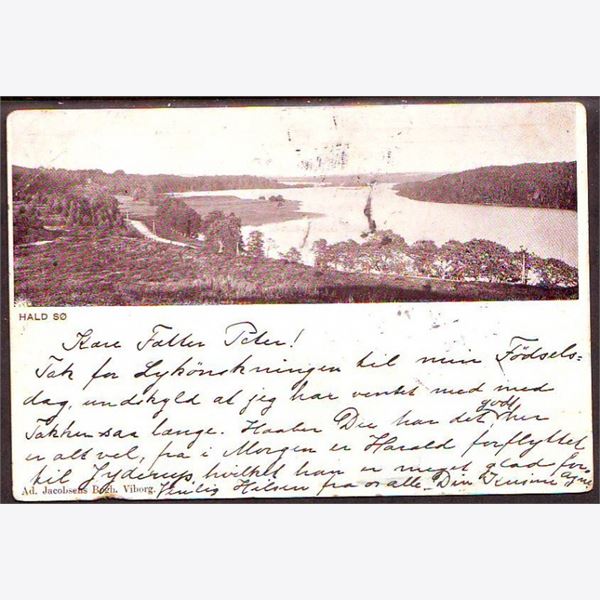 HALD SØ
Kære Fatter Peter!
Tak for Lykönskningen til min Födsels=
dag, undskyld at jeg har ventet med med
Takken saa længe. Haaber Du har det godt, her
er alt vel, fra i Morgen er Harald forflyttet
til Jyderup, hvilket han er meget glad for
Venlig Hilsen fra os alle. Din
Ad. Jacobsens Bogh. Viborg.